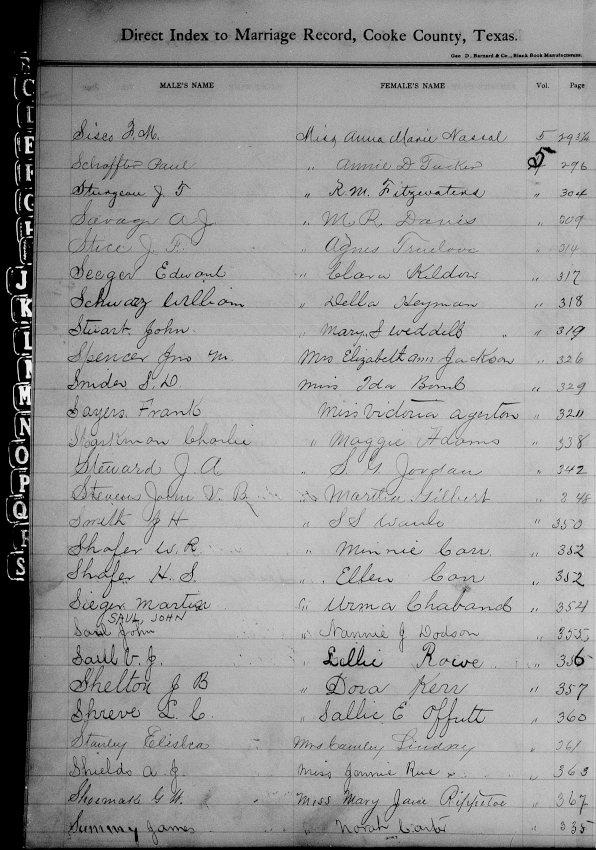 Direct Index to Marriage Record, Cooke County, Texas.
Geo. D. Barnard & Co., Blank Book Manufacturers.
MALE'S NAME FEMALE'S NAME Vol. Page
Sisco F. M. Miss Anna Marie Nassal 5 293½
Schaffter Paul " Annie D Tucker 296
Sturgeon J T " R. M. Fitzwaters " 304
Savage A J " M. R. Davis " 309
Stice J. F. " Agnes Truelove " 314
Seeger Edward " Clara Kildow " 317
Schwarz William " Della Heyman " 318
Stuart John " Mary S Weddell " 319
Spencer Jno M. Mrs Elizabeth Ann Jackson " 326
Snider S. D. Miss Ida Bomb " 329
Sayers Frank Miss Victoria Agerton " 320
Sparkman Charlie " Maggie Adams " 338
Steward J A " S. G Jordan " 342
Stevens John V. B " Martha Gilbert " 348
Smith J H " S S " 350
Shafer W. R. " Minnie Carr " 352
Shafer H. S. " Ellen Carr " 352
Sieger Martin " Urma Chaband " 354
SAUL, JOHN
Saul John " Nannie J Dodson " 355
Saul V. J. " Lillie Rowe " 356
Shelton J B " Dora Kerr " 357
Shreve L. C. " Sallie E Offutt " 360
Stanley Elisha Mrs Lindsay " 361
Shields A J Miss Jennie Rue " 363
Shoemake G W. Miss Mary Jane Rippetoe " 367
Summy James " Norah Carter " 335
C
I
E
F
G
H
I
J
K
L
M
N
O
P
Q
S